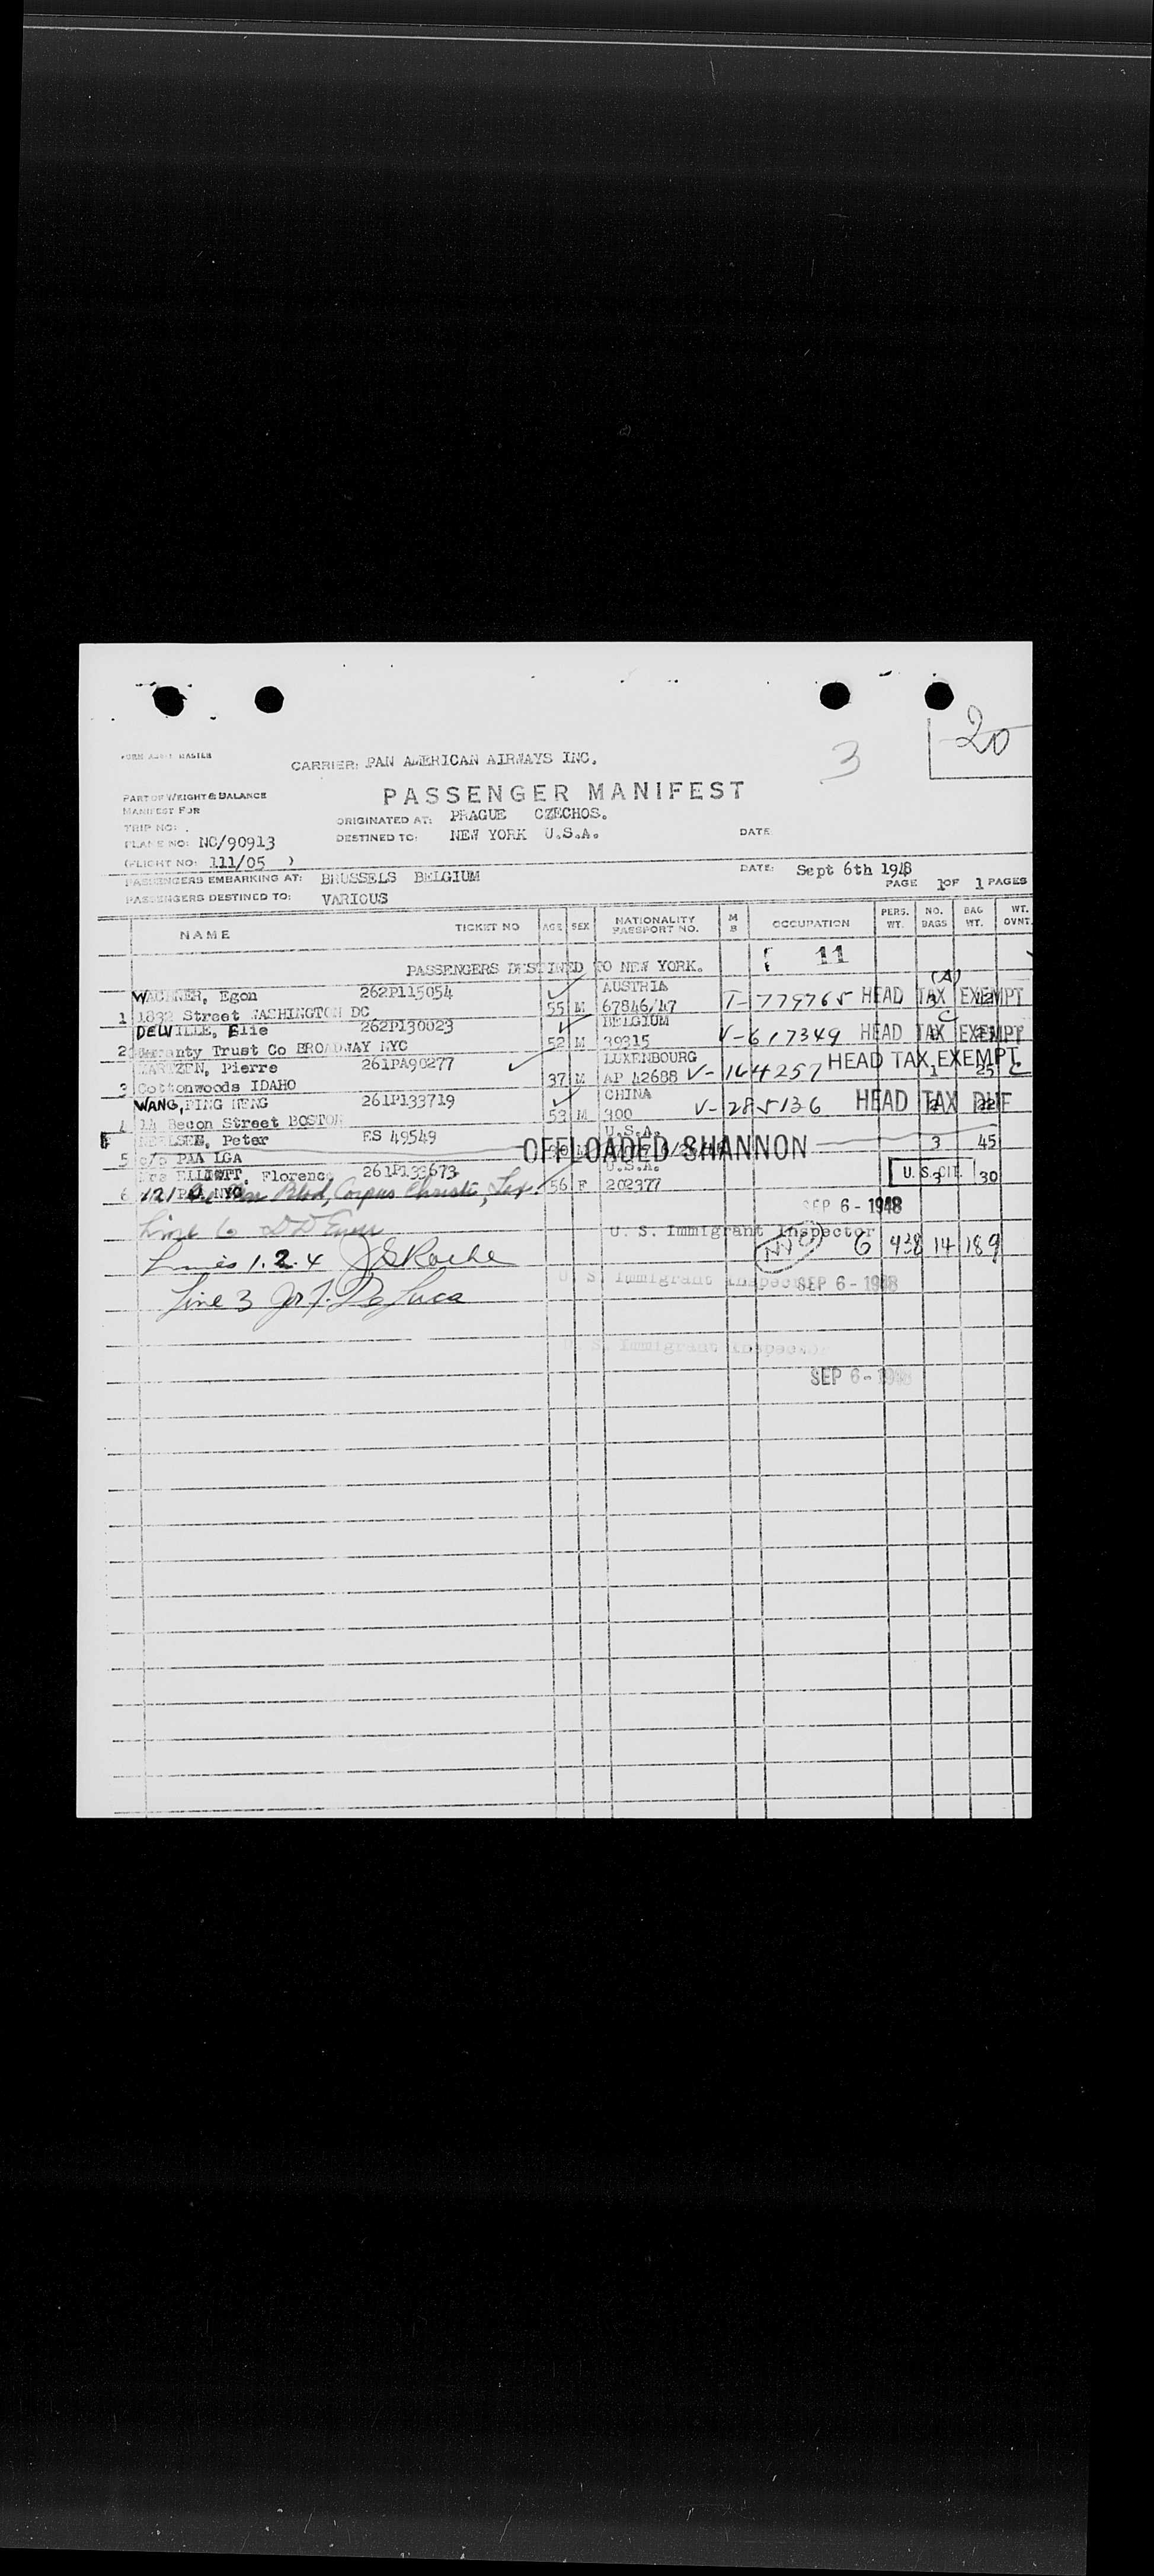 20
3
CARRIER: PAN AMERICAN AIRWAYS INC.
PASSENGER MANIFEST
PART OF WEIGHT & BALANCE
MANIFEST FOR
TRIP NO: .
ORIGINATED AT: PRAGUE CZECHOS.
PLANE NO: NC/90913
DESTINED TO: NEW YORK U.S.A.
DATE
(FLIGHT NO: 111/05 )
PASSENGERS EMBARKING AT: BRUSSELS BELGIUM
DATE: Sept 6th 1948
PAGE 1 OF 1 PAGES
PASSENGERS DESTINED TO: VARIOUS
NAME TICKET NO AGE SEX NATIONALITY PASSPORT NO. M B OCCUPATION PERS. WT. NO. BAGS BAG WT. WT. OVNT.
11
PASSENGERS DESTINED TO NEW YORK.
(A)
WACHNER, Egon 262P115054 AUSTRIA
1 1832 Street WASHINGTON DC 55 M 67846/47 T-779765 HEAD TAX EXEMPT
C
DELVILLE, Elie 262P130023 BELGIUM
2 Trust Co BROADWAY NYC 52 M 39315 V-617349 HEAD TAX EXEMPT
Pierre 261PA90277 LUXENBOURG
3 Cottonwoods IDAHO 37 M AP 42688 V-164257 HEAD TAX EXEMPT 1 25 C
WANG, PING HENG 261P133719 CHINA
4 14 Becon Street BOSTON 53 M 300 V-285136 HEAD TAX DUE
Peter ES 49549 U.S.A.
5 c/o PAA LGA OFFLOADED SHANNON 3 45
Mrs ELLIOTT, Florence 261P133673 U.S.A.
6 121 Blvd, Corpus Christi, Tex. 56 F 202377 U. S. CIT. 3 30
SEP 6 - 1948
Line 6
U. S. Immigrant Inspector
Lines 1.2.4 Roche
NYC 6 938 14 189
U. S. Immigrant Inspector SEP 6 - 1948
Line 3 De Luca
U. S. Immigrant Inspector
SEP 6 - 1948